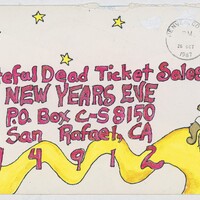 teful Dead Ticket Sales
NEW YEARS EVE
P.O. Box C-S 8150
San Rafael, CA
94912
PM
1987